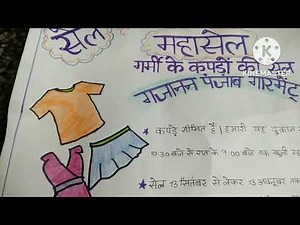 सेल
महासेल
गर्मी के कपड़ों की सेल
गजानन पंजाब गारमेंट
KINEMASTER
★ कपड़े सीमित हैं। हमारी यह दुकान
10:30 बजे से रात के 9:00 बजे तक खुली
★ सेल 13 सितंबर से लेकर 13 अक्टूबर तक